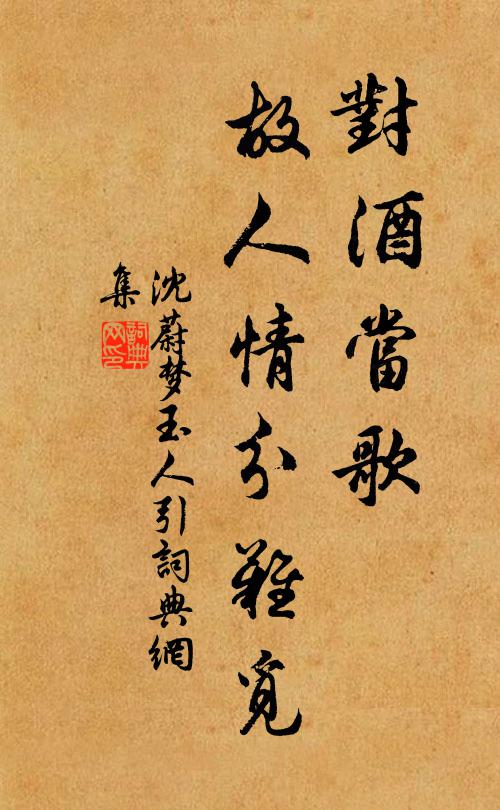 對酒當歌
故人情分難覓
沈蔚梦玉人引詞典網
集
詞典网印